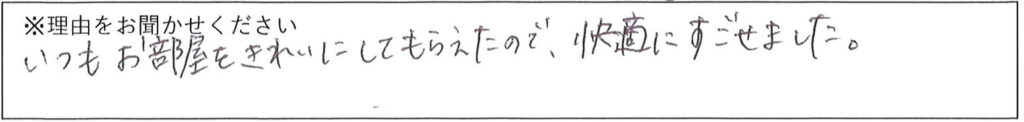 ※理由をお聞かせください
いつもお部屋をきれいにしてもらえたので、快適にすごせました。